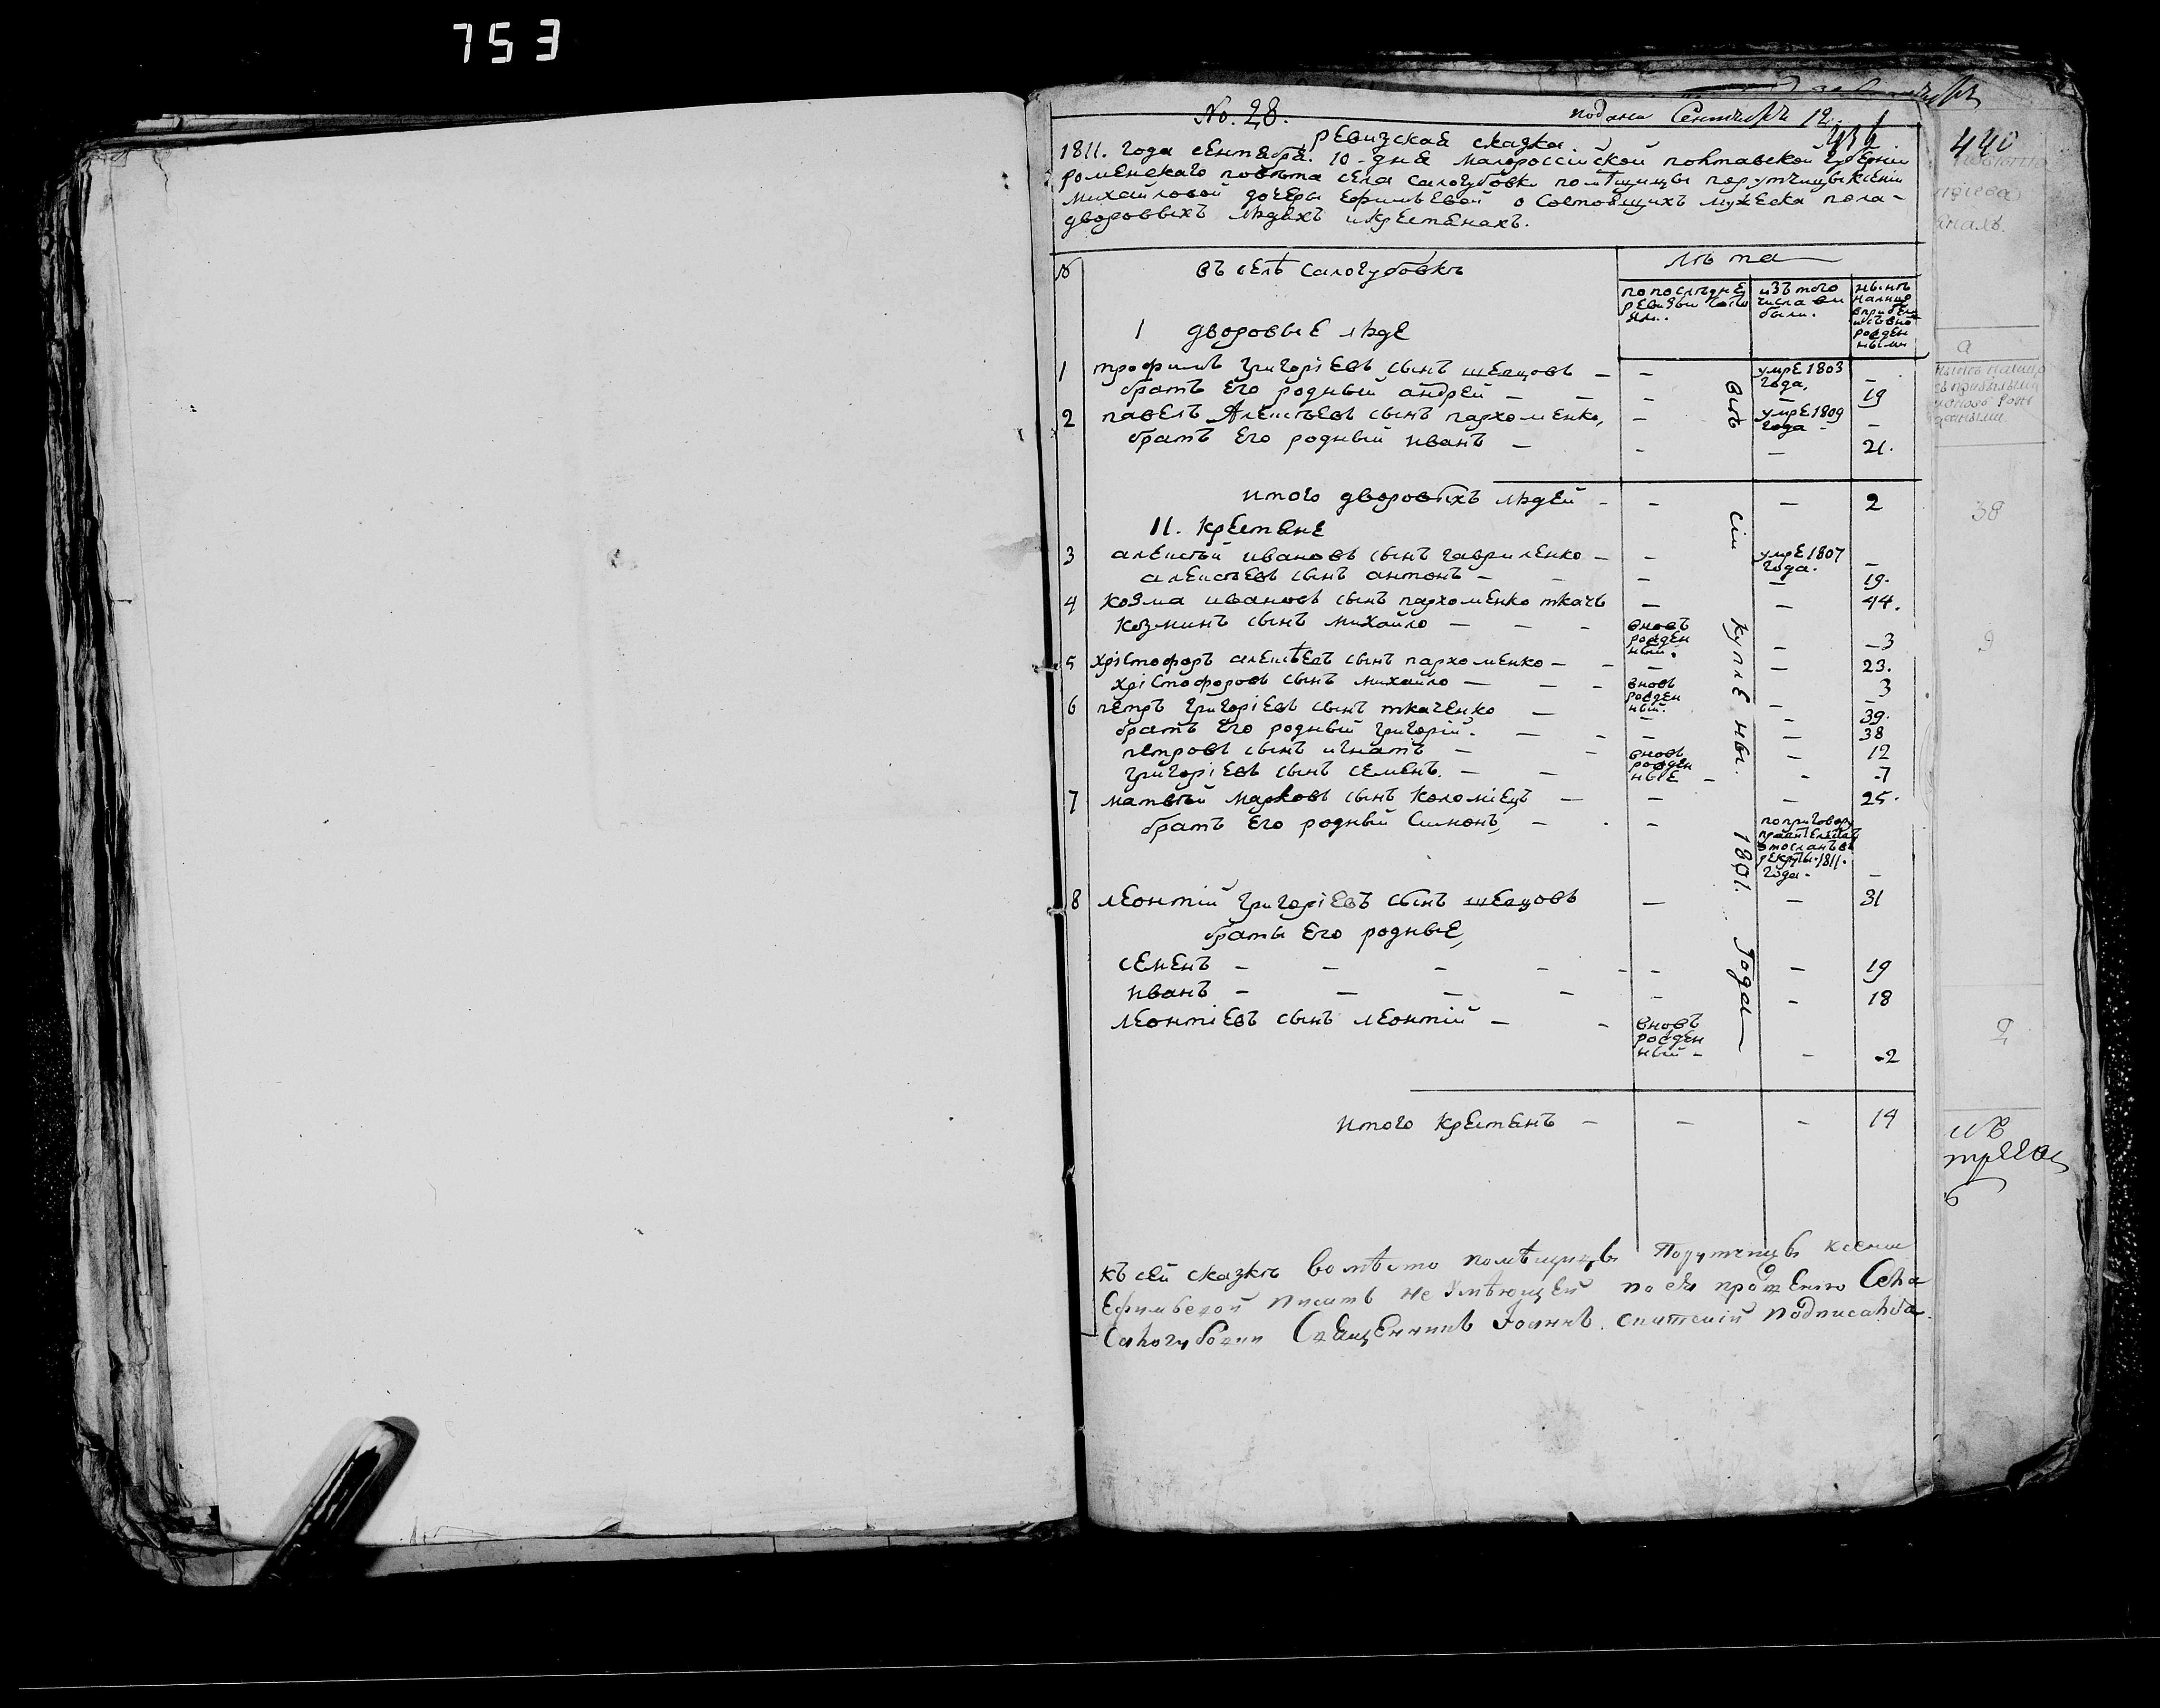 753
No. 28.
подана Сентября 12.
440
ревизская сказка.
1811. года сентября. 10 - дня малороссійской полтавской губерніи
роменскаго повѣта села салогубовки помѣщицы порутчицы ксеніи
михайловой дочеры ефимьевой о состоящихъ мужеска пола -
дворовыхъ людехъ и крестянахъ.
№
въ селѣ салогубовкѣ
лѣта
по послѣдне ревизіи состо яли..
изъ того числа вы были.
нынѣ на лицо
рожден ными
1 дворовые люде
1 трофимъ григоріевъ сынъ шевцовъ — — умре 1803 года, —
братъ его родный андрей — — — — 19
2 павелъ Алексѣевъ сынъ пархоменко, — умре 1809 года - —
братъ его родный иванъ — - — 21.
итого дворовыхъ людей - - — 2
11. Крестяне
3 алексѣй ивановъ сынъ гавриленко — - умре 1807 года. —
алексѣевъ сынъ антонъ — - — — 19.
4 козма ивановъ сынъ пархоменко ткачъ — — 44.
козминъ сынъ михайло — — - вновь рожден ный. - — 3
5 хрістофоръ алексѣевъ сынъ пархоменко — - — — 23.
хрістофоровъ сынъ михайло — — - вновь рожден ный. - 3
6 петръ григоріевъ сынъ ткаченко — - - 39.
братъ его родный григорій. — - — — 38
петровъ сынъ игнатъ — - вновь рожден ные - 12
григоріевъ сынъ семенъ. — — - - 7
7 матвѣй марковъ сынъ коломіецъ — — — 25.
братъ его родный Симонъ, — . - по приговору отосланъ въ рекруты. 1811. года - —
8 леонтій григоріевъ сынъ шевцовъ — — 31
браты его родные,
семенъ — — — - - - — 19
иванъ — — — — - - 18
леонтіевъ сынъ леонтій — - вновь рожден ный - - - 2
всѣ сіи куплены. 1801. года —
итого крестянъ — — - 14
къ сей сказкѣ вомѣсто помѣщицы Порутчицы ксеніи
Ефимьевой писать не умѣющей по ея прошенію Села
Салогубовки Священникъ Іоаннъ. подписался.
38
9